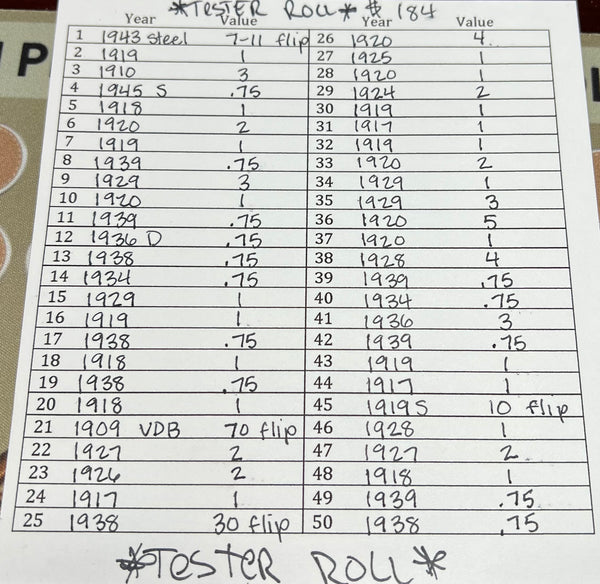 *TESTER ROLL* $ 184
Year Value Year Value
1 1943 steel 7-11 flip 26 1920 4
2 1919 1 27 1925 1
3 1910 3 28 1920 1
4 1945 S .75 29 1924 2
5 1918 1 30 1919 1
6 1920 2 31 1917 1
7 1919 1 32 1919 1
8 1939 .75 33 1920 2
9 1929 3 34 1929 1
10 1920 1 35 1929 3
11 1939 .75 36 1920 5
12 1936 D .75 37 1920 1
13 1938 .75 38 1928 4
14 1934 .75 39 1939 .75
15 1929 1 40 1934 .75
16 1919 1 41 1936 3
17 1938 .75 42 1939 .75
18 1918 1 43 1919 1
19 1938 .75 44 1917 1
20 1918 1 45 1919 S 10 flip
21 1909 VDB 70 flip 46 1928 1
22 1927 2 47 1927 2
23 1926 2 48 1918 1
24 1917 1 49 1939 .75
25 1938 30 flip 50 1938 .75
*TESTER ROLL*